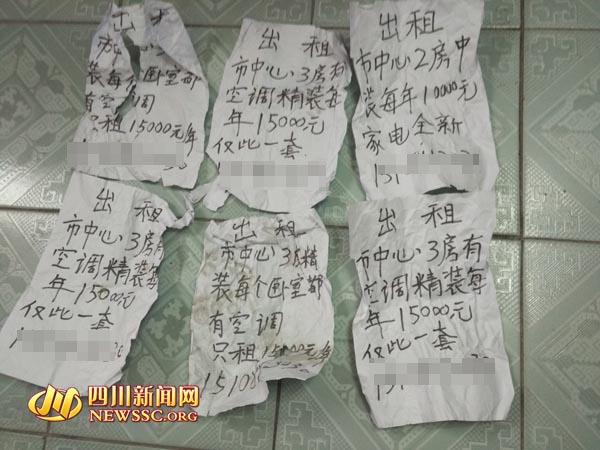 出 租
市中心
装每个卧室都
有空调
只租15000元年
出 租
市中心3房有
空调精装每
年15000元
仅此一套
出租
市中心2房中
装每年10000元
家电全新
出 租
市中心3房有
空调精装每
年15000元
仅此一套
出 租
市中心3房精
装每个卧室都
有空调
只租15000元年
1510
出 租
市中心3房有
空调精装每
年15000元
仅此一套
四川新闻网
NEWSSC.ORG